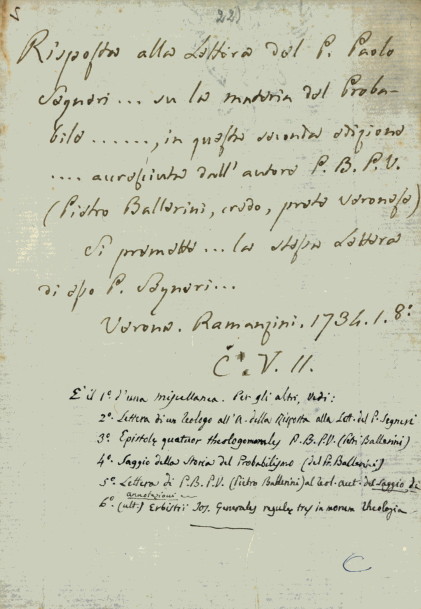 22)
Risposta alla Lettera del P. Paolo
Segneri... su la materia del Proba-
bile ......, in questa seconda edizione
.... accresciuta dall' autore P. B. P. V.
(Pietro Ballerini, credo, prete veronese)
Si premette... la stessa Lettera
di esso P. Segneri...
Verona. Ramanzini. 1734. 1. 8:
C. V. 11.
E il 1º d'una miscellanea. Per gli altri, vedi:
2º Lettera di un Teologo all'A. della Risposta alla Let. del P. Segneri
3º Epistolę quatuor theologomorales P. B. P. V. (Petri Ballerini)
4º Saggio della Storia del Probabilismo (del Pr. Ballerini)
5º Lettera di P. B. P. V. (Pietro Ballerini) al Teol. aut. del Saggio di
annotazioni
6º (ult.) Jos. Generales regulę tres in morum theologia